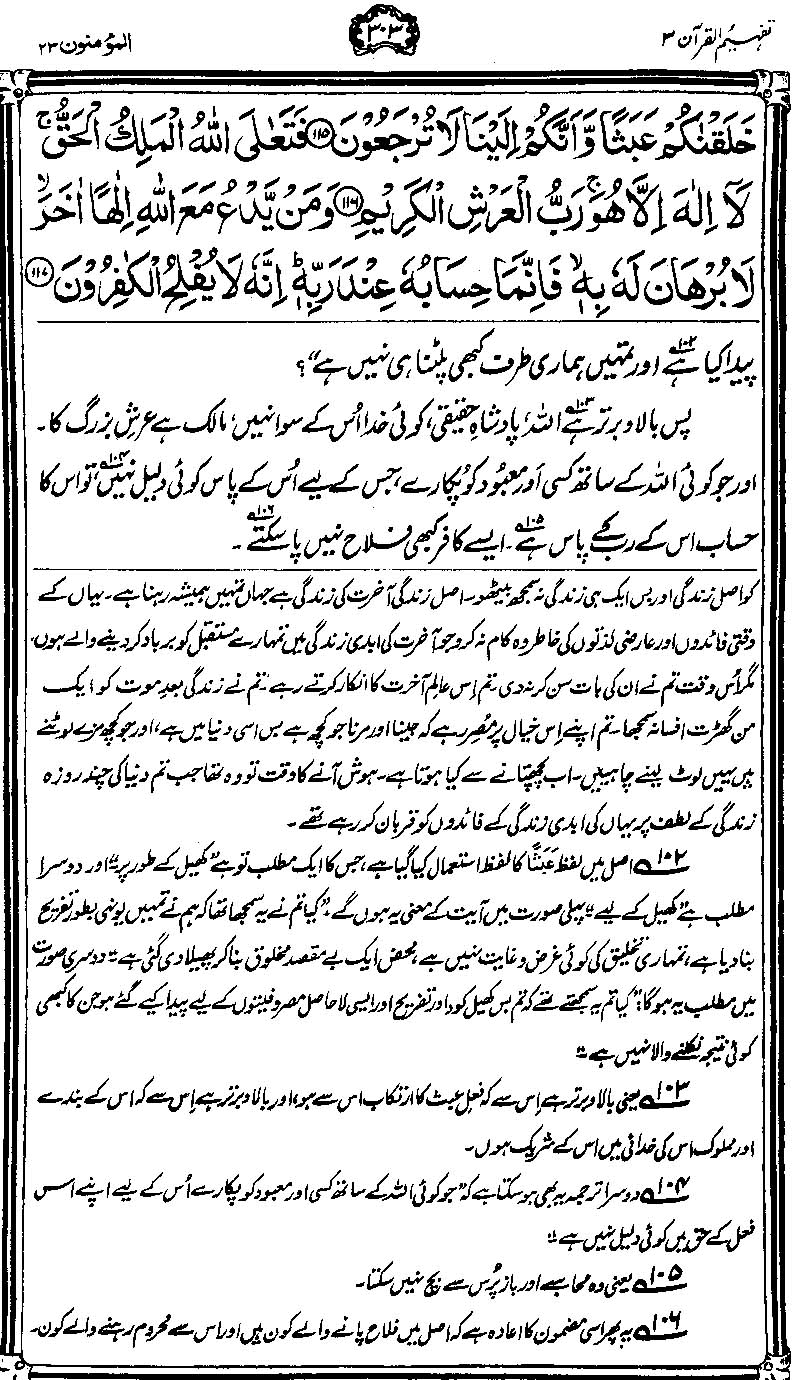 تفہیم القرآن ۳
۳۰۳
المؤمنون ۲۳
خَلَقْنٰكُمْ عَبَثًا وَّاَنَّكُمْ اِلَيْنَا لَا تُرْجَعُوْنَ ﴿۱۱۵﴾ فَتَعٰلَى اللّٰهُ الْمَلِكُ الْحَقُّ ۚ
لَآ اِلٰهَ اِلَّا هُوَ ۚ رَبُّ الْعَرْشِ الْكَرِيْمِ ﴿۱۱۶﴾ وَمَنْ يَّدْعُ مَعَ اللّٰهِ اِلٰهًا اٰخَرَ ۙ
لَا بُرْهَانَ لَهٗ بِهٖ ۙ فَاِنَّمَا حِسَابُهٗ عِنْدَ رَبِّهٖ ؕ اِنَّهٗ لَا يُفْلِحُ الْكٰفِرُوْنَ ﴿۱۱۷﴾
پیدا کیا ہے۱۰۲ اور تمہیں ہماری طرف کبھی پلٹنا ہی نہیں ہے“؟
پس بالا و برتر ہے۱۰۳ اللہ، پادشاہِ حقیقی، کوئی خدا اُس کے سوا نہیں، مالک ہے عرشِ بزرگ کا۔
اور جو کوئی اللہ کے ساتھ کسی اور معبود کو پکارے، جس کے لیے اُس کے پاس کوئی دلیل نہیں۱۰۴، تو اس کا
حساب اس کے رب کے پاس ہے۱۰۵۔ ایسے کافر کبھی فلاح نہیں پا سکتے۱۰۶۔
کو اصل زندگی اور بس ایک ہی زندگی نہ سمجھ بیٹھو۔ اصل زندگی آخرت کی زندگی ہے جہاں تمہیں ہمیشہ رہنا ہے۔ یہاں کے
وقتی فائدوں اور عارضی لذتوں کی خاطر وہ کام نہ کرو جو آخرت کی ابدی زندگی میں تمہارے مستقبل کو برباد کر دینے والے ہوں۔
مگر اُس وقت تم نے ان کی بات سن کر نہ دی۔ تم اِس عالمِ آخرت کا انکار کرتے رہے۔ تم نے زندگی بعدِ موت کو ایک
من گھڑت افسانہ سمجھا۔ تم اپنے اِس خیال پر مُصِر رہے کہ جینا اور مرنا جو کچھ ہے بس اسی دنیا میں ہے، اور جو کچھ مزے لوٹنے
ہیں یہیں لوٹ لینے چاہییں۔ اب پچھتانے سے کیا ہوتا ہے۔ ہوش آنے کا وقت تو وہ تھا جب تم دنیا کی چند روزہ
زندگی کے لطف پر یہاں کی ابدی زندگی کے فائدوں کو قربان کر رہے تھے۔
۱۰۲ اصل میں لفظ عَبَثًا کا لفظ استعمال کیا گیا ہے، جس کا ایک مطلب تو ہے ”کھیل کے طور پر“ اور دوسرا
مطلب ہے ”کھیل کے لیے“۔ پہلی صورت میں آیت کے معنی یہ ہوں گے ”کیا تم نے یہ سمجھا تھا کہ ہم نے تمہیں یونہی بطور تفریح
بنا دیا ہے، تمہاری تخلیق کی کوئی غرض و غایت نہیں ہے، محض ایک بے مقصد مخلوق بنا کر پھیلا دی گئی ہے“۔ دوسری صورت
میں مطلب یہ ہوگا: ”کیا تم یہ سمجھتے تھے کہ تم بس کھیل کود اور تفریح اور ایسی لاحاصل مصروفیتوں کے لیے پیدا کیے گئے ہو جن کا کبھی
کوئی نتیجہ نکلنے والا نہیں ہے“۔
۱۰۳ یعنی بالا و برتر ہے اِس سے کہ فعلِ عبث کا ارتکاب اس سے ہو، اور بالا و برتر ہے اِس سے کہ اس کے بندے
اور مملوک اس کی خدائی میں اس کے شریک ہوں۔
۱۰۴ دوسرا ترجمہ یہ بھی ہو سکتا ہے کہ ”جو کوئی اللہ کے ساتھ کسی اور معبود کو پکارے اُس کے لیے اپنے اس
فعل کے حق میں کوئی دلیل نہیں ہے“۔
۱۰۵ یعنی وہ محاسبے اور باز پُرس سے بچ نہیں سکتا۔
۱۰۶ یہ پھر اسی مضمون کا اعادہ ہے کہ اصل میں فلاح پانے والے کون ہیں اور اس سے محروم رہنے والے کون۔